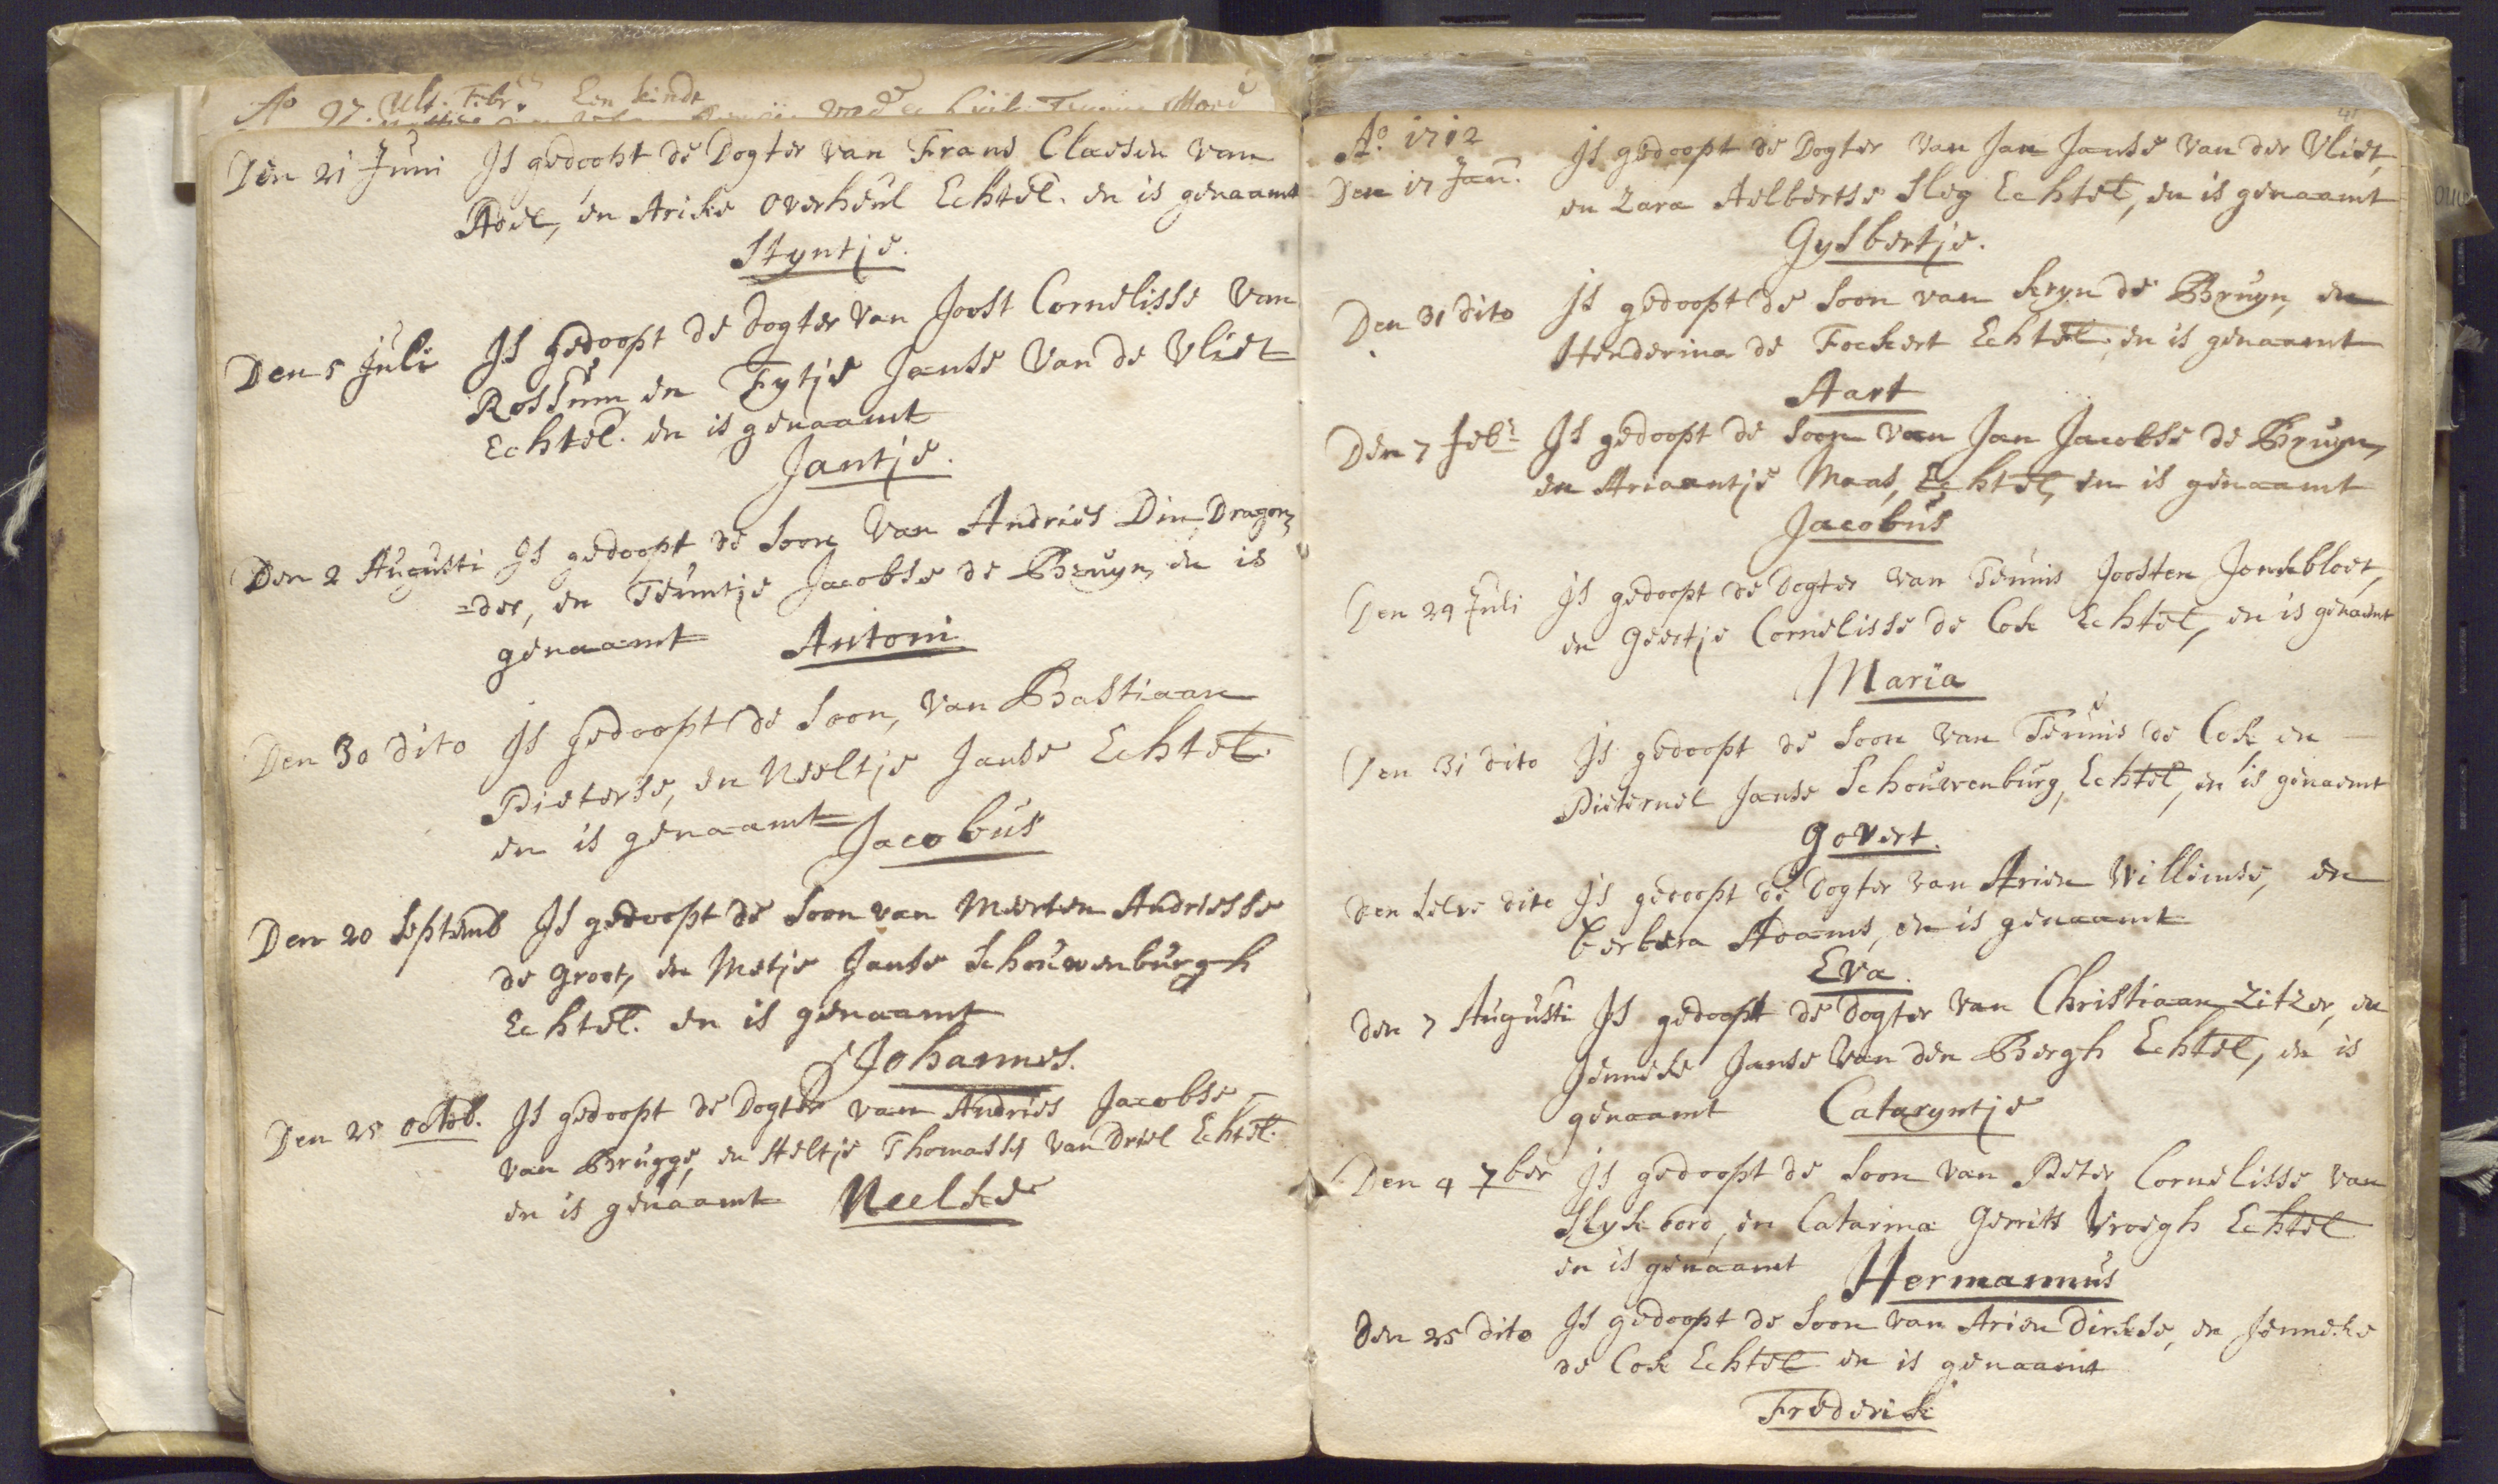 Ao 97. Ult. Febr. Een kindt
Den 21 Juni Is gedoopt de Dogter van Frans Claesen van
en Aricke Overheul Echtel. en is genaamt
Styntje.
Den 5 Juli Is gedoopt de dogter van Joost Cornelisse van
Rossum en Fytje Janse van de Vliet
Echtel. en is genaamt
Jantje.
Den 2 Augusti Is gedoopt de soon van Andries Din, Dragon=
=der, en Teuntje Jacobse de Bruyn, en is
genaamt Antoni
Den 30 dito Is gedoopt de soon, van Bastiaan
Pieterse, en Neeltje Janse Echtel.
en is genaamt Jacobus
Den 20 Septemb Is gedoopt de soon van Merten Andriesse
de Groot, en Metje Janse Schouwenburgh
Echtel. en is genaamt
Johannes.
Den 25 octob. Is gedoopt de Dogter van Andries Jacobse
van Brugge, en Aeltje Thomasse van Driel Echtel.
en is genaamt Neelske
41
Ao. 1712
Den 17 Jan. Is gedoopt de Dogter van Jan Janse van der Vliet,
en Zara Aelbertse Sleg Echtel, en is genaamt
Gysbertje.
Den 31 dito Is gedoopt de soon van Kryn de Bruyn, en
Henderina de Fockert Echtel. en is genaamt
Aart
Den 7 Febr Is gedoopt de soon van Jan Jacobse de Bruyn,
en Ariaantje Maas, Echtel, en is genaamt
Jacobus
Den 24 Juli Is gedoopt de Dogter van Teunis Joosten Jonckbloet,
en Geertje Cornelisse de Cock Echtel, en is genaemt
Maria
Den 31 dito Is gedoopt de soon van Teunis de Cock, en
Pieternel Janse Schouwenburg, Echtel, en is genaemt
Govert.
den selve dito Is gedoopt de Dogter van Arien Willemse, en
Berbera Adams, en is genaamt
Eva.
den 7 Augusti Is gedoopt de dogter van Christiaan Zitzer, en
Jenneke Janse van den Bergh Echtel, en is
genaamt Cataryntje
Den 4 7ber Is gedoopt de soon van Peter Cornelisse van
Slyckbord, en Catarina Gerrits Vroegh Echtel
en is genaamt Hermannus
Den 25 dito Is gedoopt de soon van Arien Dirckse, en Jenneke
de Cock Echtel en is genaamt
Frederick